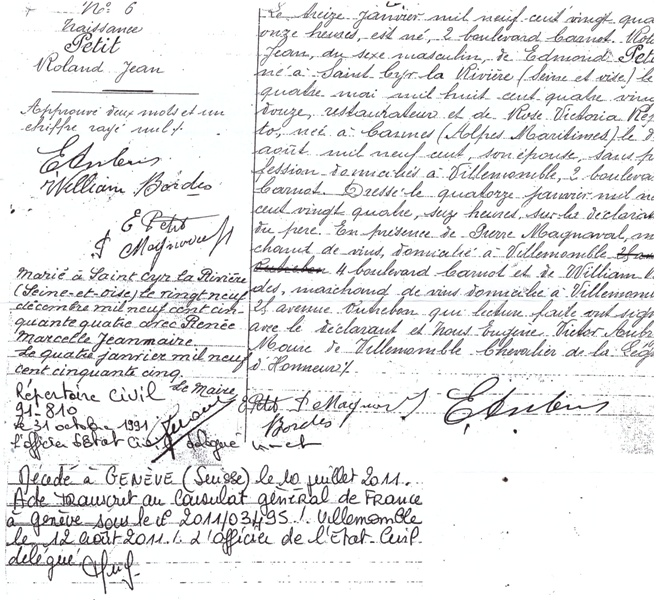 N° 6
Naissance
Petit
Roland Jean
Approuvé deux mots et un
chiffre rayé nul
EAubens
William Bordes
E Petit
P Magnaval
Marié à Saint Cyr la Rivière
(Seine-et-Oise) le vingt neuf
décembre mil neuf cent cin-
quante quatre avec Renée
Marcelle Jeanmaire
Le quatre janvier mil neuf
cent cinquante cinq.
Le Maire
Répertoire Civil
91-810
le 31 octobre 1991
l'officier d'Etat Civil délégué
Le treize janvier mil neuf cent vingt qua
onze heures, est né, 2 boulevard Carnot. Rol
Jean, du sexe masculin, de Edmond Petit
né à Saint Cyr la Rivière (Seine et Oise) le
quatre mai mil huit cent quatre vin
douze, restaurateur et de Rose Victoria Rep
to, née à Cannes (Alpes Maritimes) le d
août mil neuf cent son épouse, sans pro
fession domiciliés à Villemomble, 2 boulevard
Carnot. Dressé le quatorze janvier mil ne
cent vingt quatre, seize heures, sur la déclarat
du père. En présence de Pierre Magnaval, m
chand de vins, domicilié à Villemomble
4 boulevard Carnot et de William B
des, marchand de vins domicilié à Villemomb
25 avenue Outrebon qui lecture faite ont sign
avec le déclarant et Nous Eugène Victor Aub
Maire de Villemomble Chevalier de la Lég
d'Honneur
E Petit P Magnaval
Bordes
EAubens
Décédé à GENÈVE (Suisse) le 10 juillet 2011.
Acte transcrit au Consulat général de France
à genève sous le n° 2011/03495 !. Villemomble
le 12 août 2011 !. L'officier de l'Etat Civil
délégué